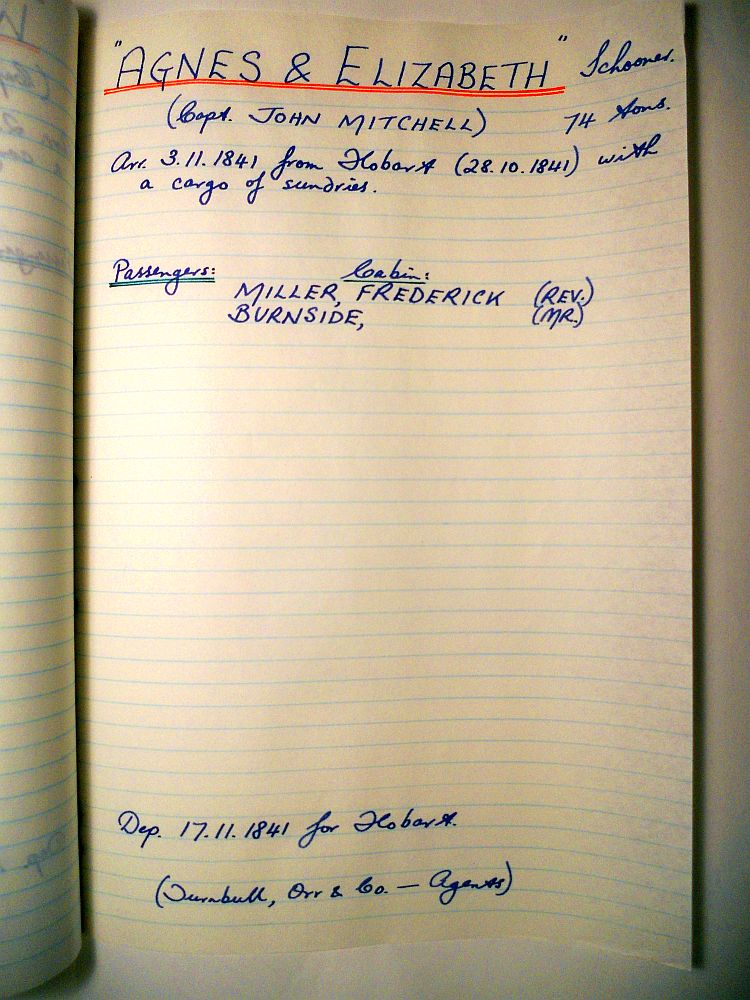 "AGNES & ELIZABETH" Schooner.
(Capt. JOHN MITCHELL) 74 tons.
Arr. 3.11.1841 from Hobart (28.10.1841) with
a cargo of sundries.
Passengers: Cabin:
MILLER, FREDERICK (REV.)
BURNSIDE, (MR.)
Dep. 17.11.1841 for Hobart.
(Turnbull, Orr & Co. — Agents)